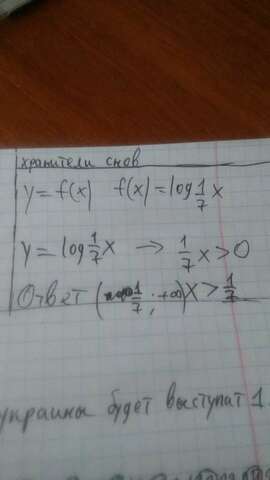 хранители снов
y = f(x) f(x) = log 1/7 x
y = log 1/7 x → 1/7 x > 0
Ответ (1/7; +∞) x > 1/7
украины будет выступат 1